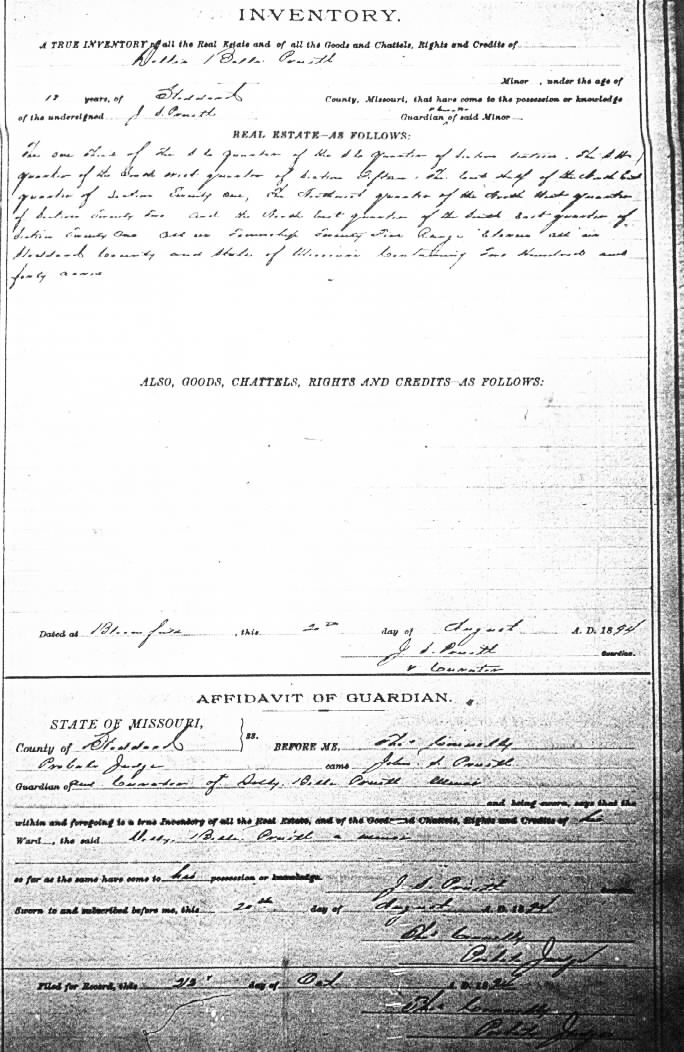 INVENTORY.
A TRUE INVENTORY of all the Real Estate and of all the Goods and Chattels, Rights and Credits of
Belle Pruitt
Minor, under the age of
18 years, of Stoddard County, Missouri, that have come to the possession or knowledge
of the undersigned J S Pruitt Guardian of said Minor
REAL ESTATE—AS FOLLOWS:
The one third of the quarter of the quarter of Section Sixteen. The
quarter of the South West quarter of Section Fifteen. The East half of the North East
quarter of Section Twenty One, The Northwest quarter of the North West quarter
of Section Twenty Two and the North East quarter of the South East quarter of
Section Twenty One All in Township Twenty Five Range Eleven all in
Stoddard County and State of Missouri Containing Two Hundred and
forty acres
ALSO, GOODS, CHATTELS, RIGHTS AND CREDITS—AS FOLLOWS:
Dated at Bloomfield, this 20th day of August A. D. 1894
J S Pruitt Guardian.
& Curator
AFFIDAVIT OF GUARDIAN.
STATE OF MISSOURI,
County of Stoddard } ss. BEFORE ME, Thos Connelly
Probate Judge came John S Pruitt
Guardian and Curator of Belle Pruitt Minor
and being sworn, says that the
within and foregoing is a true Inventory of all the Real Estate, and of the Goods and Chattels, Rights and Credits of his
Ward, the said Belle Pruitt a minor
so far as the same have come to his possession or knowledge.
J S Pruitt
Sworn to and subscribed before me, this 20th day of August A. D. 1894
Thos Connelly
Probate Judge
Filed for Record, this day of Oct A. D. 1894
Thos Connelly
Probate Judge